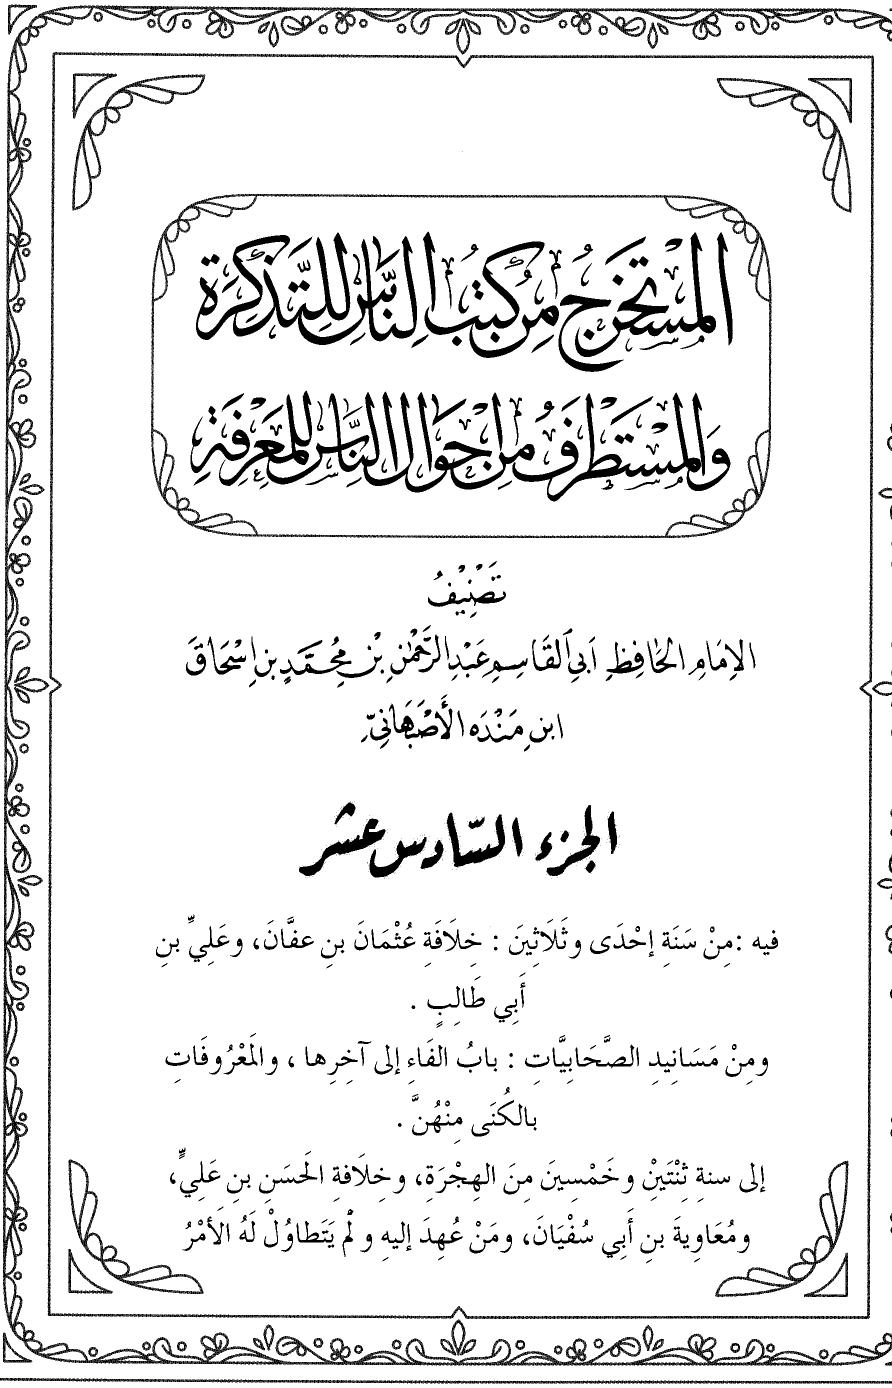 المُسْتَخْرَجُ مِنْ كُتُبِ النَّاسِ لِلتَّذْكِرَةِ
وَالمُسْتَطْرَفُ مِنْ أَحْوَالِ النَّاسِ لِلْمَعْرِفَةِ
تَصْنِيْفُ
الإِمَامِ الحَافِظِ أَبِي القَاسِمِ عَبْدِ الرَّحْمٰنِ بْنِ مُحَمَّدِ بنِ إِسْحَاقَ
ابنِ مَنْدَه الأَصْبَهَانِيِّ
الجزء السَّادس عشر
فيه :مِنْ سَنَةِ إحْدَى وثَلَاثِينَ : خِلَافَةِ عُثْمَانَ بنِ عفَّانَ، وعَلِيِّ بنِ
أَبِي طَالِبٍ .
ومِنْ مَسَانِيدِ الصَّحَابِيَّاتِ : بابُ الفَاءِ إلى آخِرِها ، والمَعْرُوفَاتِ
بالكُنَى مِنْهُنَّ .
إلى سنةِ ثِنْتَيْنِ وخَمْسِينَ مِنَ الهِجْرَةِ، وخِلَافةِ الحَسَنِ بنِ عَلِيٍّ،
ومُعَاوِيةَ بنِ أَبِي سُفْيَانَ، ومَنْ عُهِدَ إليهِ و لَمْ يَتَطاوُلْ لَهُ الأمْرُ